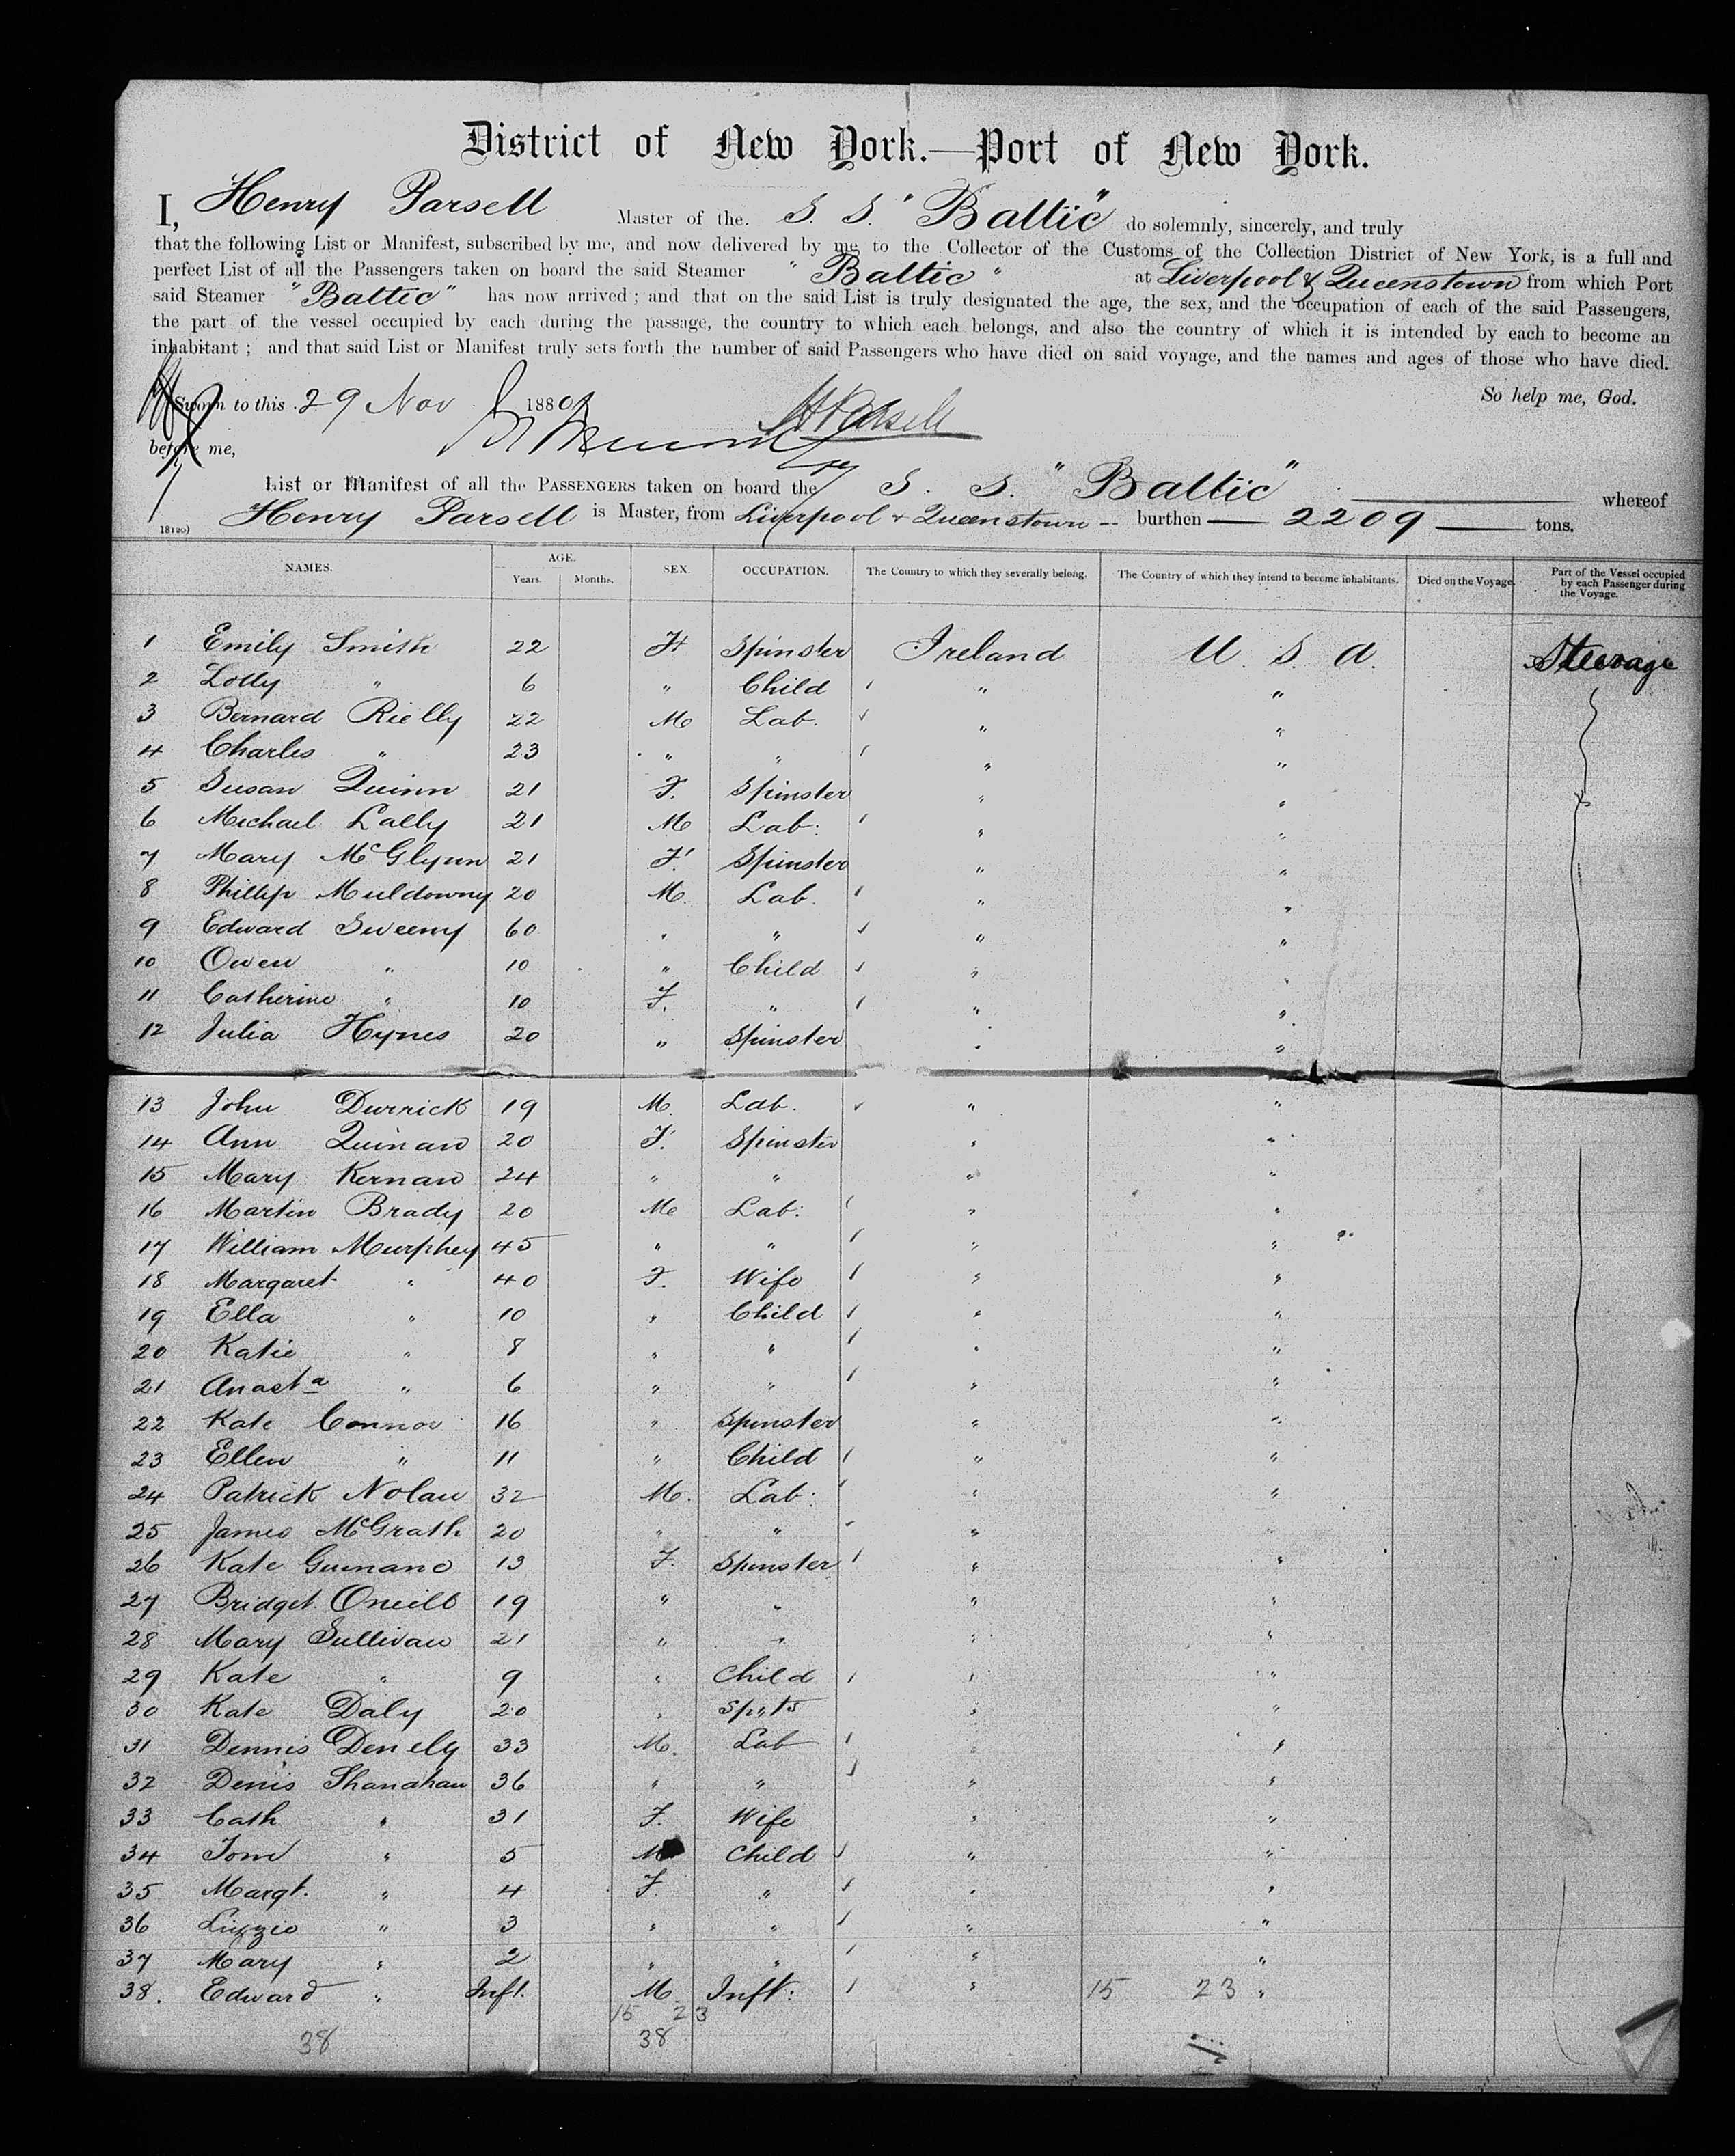 District of New York.—Port of New York.
I, Henry Parsell Master of the. S. S. "Baltic" do solemnly, sincerely, and truly
that the following List or Manifest, subscribed by me, and now delivered by me to the Collector of the Customs of the Collection District of New York, is a full and
perfect List of all the Passengers taken on board the said Steamer "Baltic" at Liverpool & Queenstown from which Port
said Steamer "Baltic" has now arrived; and that on the said List is truly designated the age, the sex, and the occupation of each of the said Passengers,
the part of the vessel occupied by each during the passage, the country to which each belongs, and also the country of which it is intended by each to become an
inhabitant; and that said List or Manifest truly sets forth the number of said Passengers who have died on said voyage, and the names and ages of those who have died.
So help me, God.
Sworn to this 29 Nov 1880 HParsell
before me,
List or Manifest of all the PASSENGERS taken on board the S. S. "Baltic" whereof
Henry Parsell is Master, from Liverpool & Queenstown burthen — 2209 — tons.
NAMES. AGE. SEX. OCCUPATION. The Country to which they severally belong. The Country of which they intend to become inhabitants. Died on the Voyage. Part of the Vessel occupied by each Passenger during the Voyage.
Years. Months.
1 Emily Smith 22 F Spinster Ireland U. S. A. Steerage
2 Lotty " 6 " Child " "
3 Bernard Rielly 22 M Lab. " "
4 Charles " 23 " " " "
5 Susan Quinn 21 F. Spinster " "
6 Michael Lally 21 M Lab: " "
7 Mary McGlynn 21 F. Spinster " "
8 Phillip Muldowny 20 M. Lab. " "
9 Edward Sweeny 60 " " " "
10 Owen " 10 " Child " "
11 Catherine " 10 F. " " "
12 Julia Hynes 20 " Spinster " "
13 John Durrick 19 M. Lab. " "
14 Ann Quinan 20 F. Spinster " "
15 Mary Kernan 24 " " " "
16 Martin Brady 20 M Lab: " "
17 William Murphey 45 " " " "
18 Margaret " 40 F. Wife " "
19 Ella " 10 " Child " "
20 Katie " 8 " " " "
21 Anasta " 6 " " " "
22 Kate Connor 16 " Spinster " "
23 Ellen " 11 " Child " "
24 Patrick Nolan 32 M. Lab: " "
25 James McGrath 20 " " " "
26 Kate Guinane 13 F. Spinster " "
27 Bridget Oneill 19 " " " "
28 Mary Sullivan 21 " " " "
29 Kate " 9 " Child " "
30 Kate Daly 20 " " "
31 Dennis Denely 33 M. Lab " "
32 Denis Shanahan 36 " " " "
33 Cath " 31 F. Wife " "
34 Tom " 5 M Child " "
35 Margt. " 4 F. " " "
36 Lizzie " 3 " " " "
37 Mary " 2 " " " "
38. Edward " Inft. M. Inft: " 15 23 "
15 23
38 38